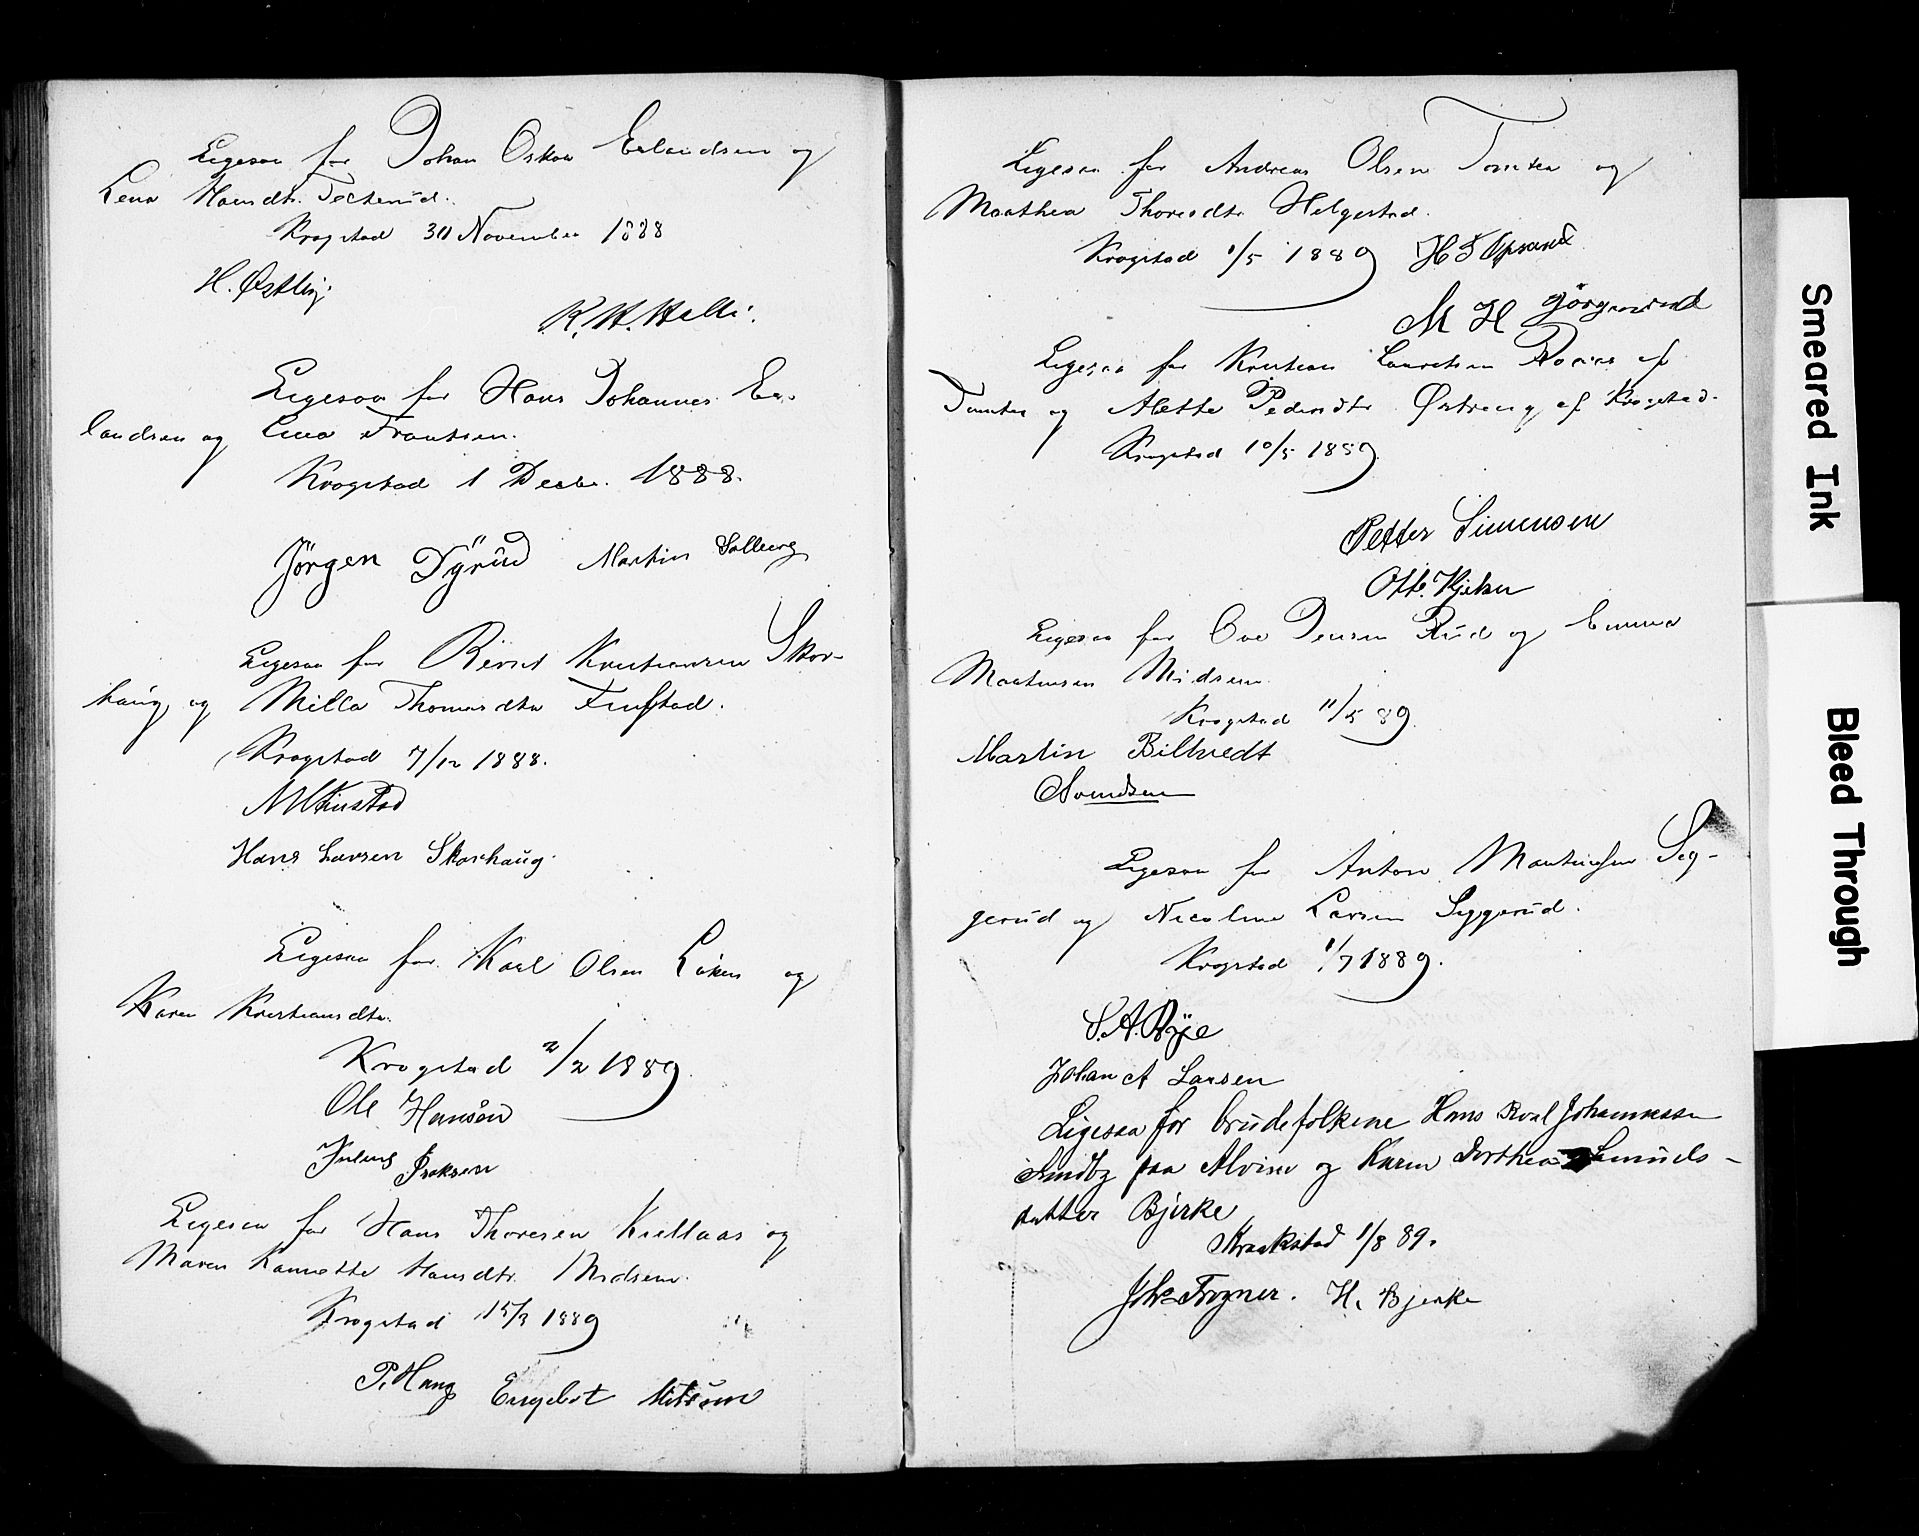 Ligesaa for Johan Oskar Erlandsen og
Lena Hansdtr. Tecterud.
Krogstad 30 November 1888
H. Østby
K. H. Helli.
Ligesaa for Hans Johannes Er-
landsen og Lina Frantsen.
Krogstad 1 Decbr. 1888.
Jörgen Dÿrŭd Martin Solberg
Ligesaa for Bernt Kristiansen Skor-
haug og Milla Thomasdtr Finstad.
Krogstad 7/12 1888.
Hans Larsen Skorhaug.
Ligesaa for Karl Olsen Løken og
Karen Kristiansdtr.
Krogstad 2/2 1889.
Ole Hansen
Julius Iseksen
Ligesaa for Hans Thoresen Kiellaas og
Maren Lannette Hansdtr. Midsem.
Krogstad 15/3 1889
P. Haug Engebret Mitsem
Ligesaa for Andreas Olsen Tomter og
Marthea Thoresdtr Helgestad.
Krogstad 1/5 1889 H T Opsand
M H Jörgensrud
Ligesaa for Kristian Lauritsen af
Tomter og Alette Pedersdtr Østreng af Krogstad.
Krogstad 10/5 1889
Petter Simensen
Otto Kjelsen
Ligesaa for Ove Jensen Rŭd og Emma
Martinsen Midsem.
Krogstad 11/5 89.
Martin Billvedt
Svendsen
Ligesaa for Anton Martinsen Seg-
gerŭd og Nicoline Larsen Seggerŭd.
Krogstad 1/7 1889.
S. A. Bÿe
Johan A Larsen
Ligesaa for brudefolkene Hans Roal Johannessen
Sundby paa Alvine og Karen Dorthea Samŭels-
datter Bjerke
Kraakstad 1/8 89.
Johs Frogner. H. Bjerke
Smeared Ink
Bleed Through